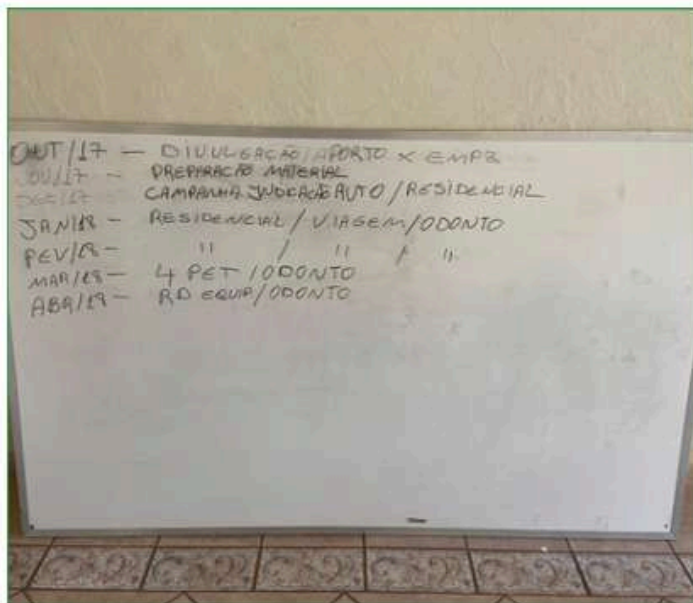 OUT/17 — DIVULGAÇÃO/APORTO X EMPB
NOV/17 — PREPARAÇÃO MATERIAL
DEZ/17 CAMPANHA INDICAÇÃO AUTO/RESIDENCIAL
JAN/18 — RESIDENCIAL/VIAGEM/ODONTO
FEV/18 — " / " / "
MAR/18 — 4 PET/ODONTO
ABR/18 — RD EQUIP/ODONTO